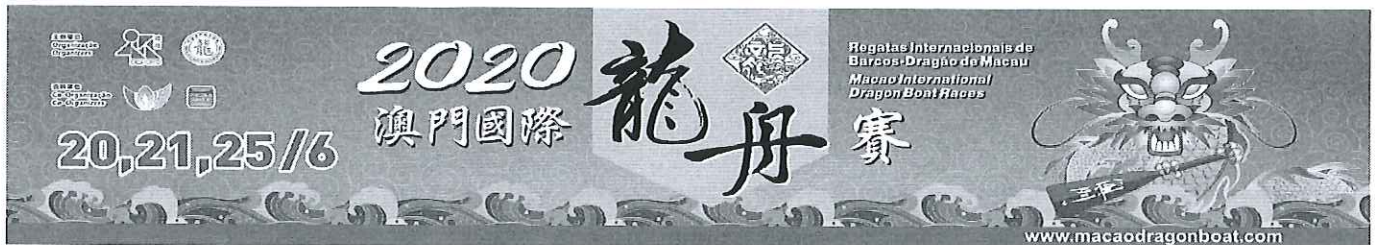 主辦單位
Organização
Organizers
合辦單位
Co-Organização
Co-Organizers
20,21,25/6
2020
澳門國際
龍舟
賽
Regatas Internacionais de
Barcos-Dragão de Macau
Macao International
Dragon Boat Races
www.macaodragonboat.com